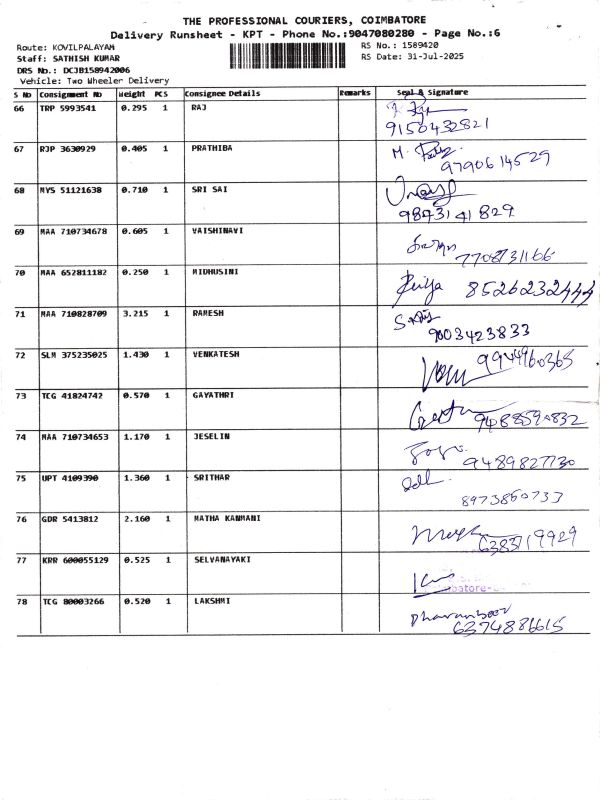 THE PROFESSIONAL COURIERS, COIMBATORE
Delivery Runsheet - KPT - Phone No.:9047080280 - Page No.:6
Route: KOVILPALAYAM RS No.: 1589420
Staff: SATHISH KUMAR RS Date: 31-Jul-2025
DRS No.: DCJB158942006
Vehicle: Two Wheeler Delivery
S No Consignment No Weight PCS Consignee Details Remarks Seal & Signature
66 TRP 5993541 0.295 1 RAJ
9150432821
67 RJP 3630929 0.405 1 PRATHIBA
9790614529
68 MYS 51121638 0.710 1 SRI SAI
9843141829
69 MAA 710734678 0.605 1 VAISHINAVI
7708731166
70 MAA 652811182 0.250 1 MIDHUSINI
Priya 8526232444
71 MAA 710828709 3.215 1 RAMESH
9003423833
72 SLM 375235025 1.430 1 VENKATESH
9944960365
73 TCG 41824742 0.570 1 GAYATHRI
9488590832
74 MAA 710734653 1.170 1 JESELIN
9489827730
75 UPT 4109390 1.360 1 SRITHAR
8973860733
76 GDR 5413812 2.160 1 MATHA KANMANI
6383719929
77 KRR 600055129 0.525 1 SELVANAYAKI
78 TCG 80003266 0.520 1 LAKSHMI
6374886615